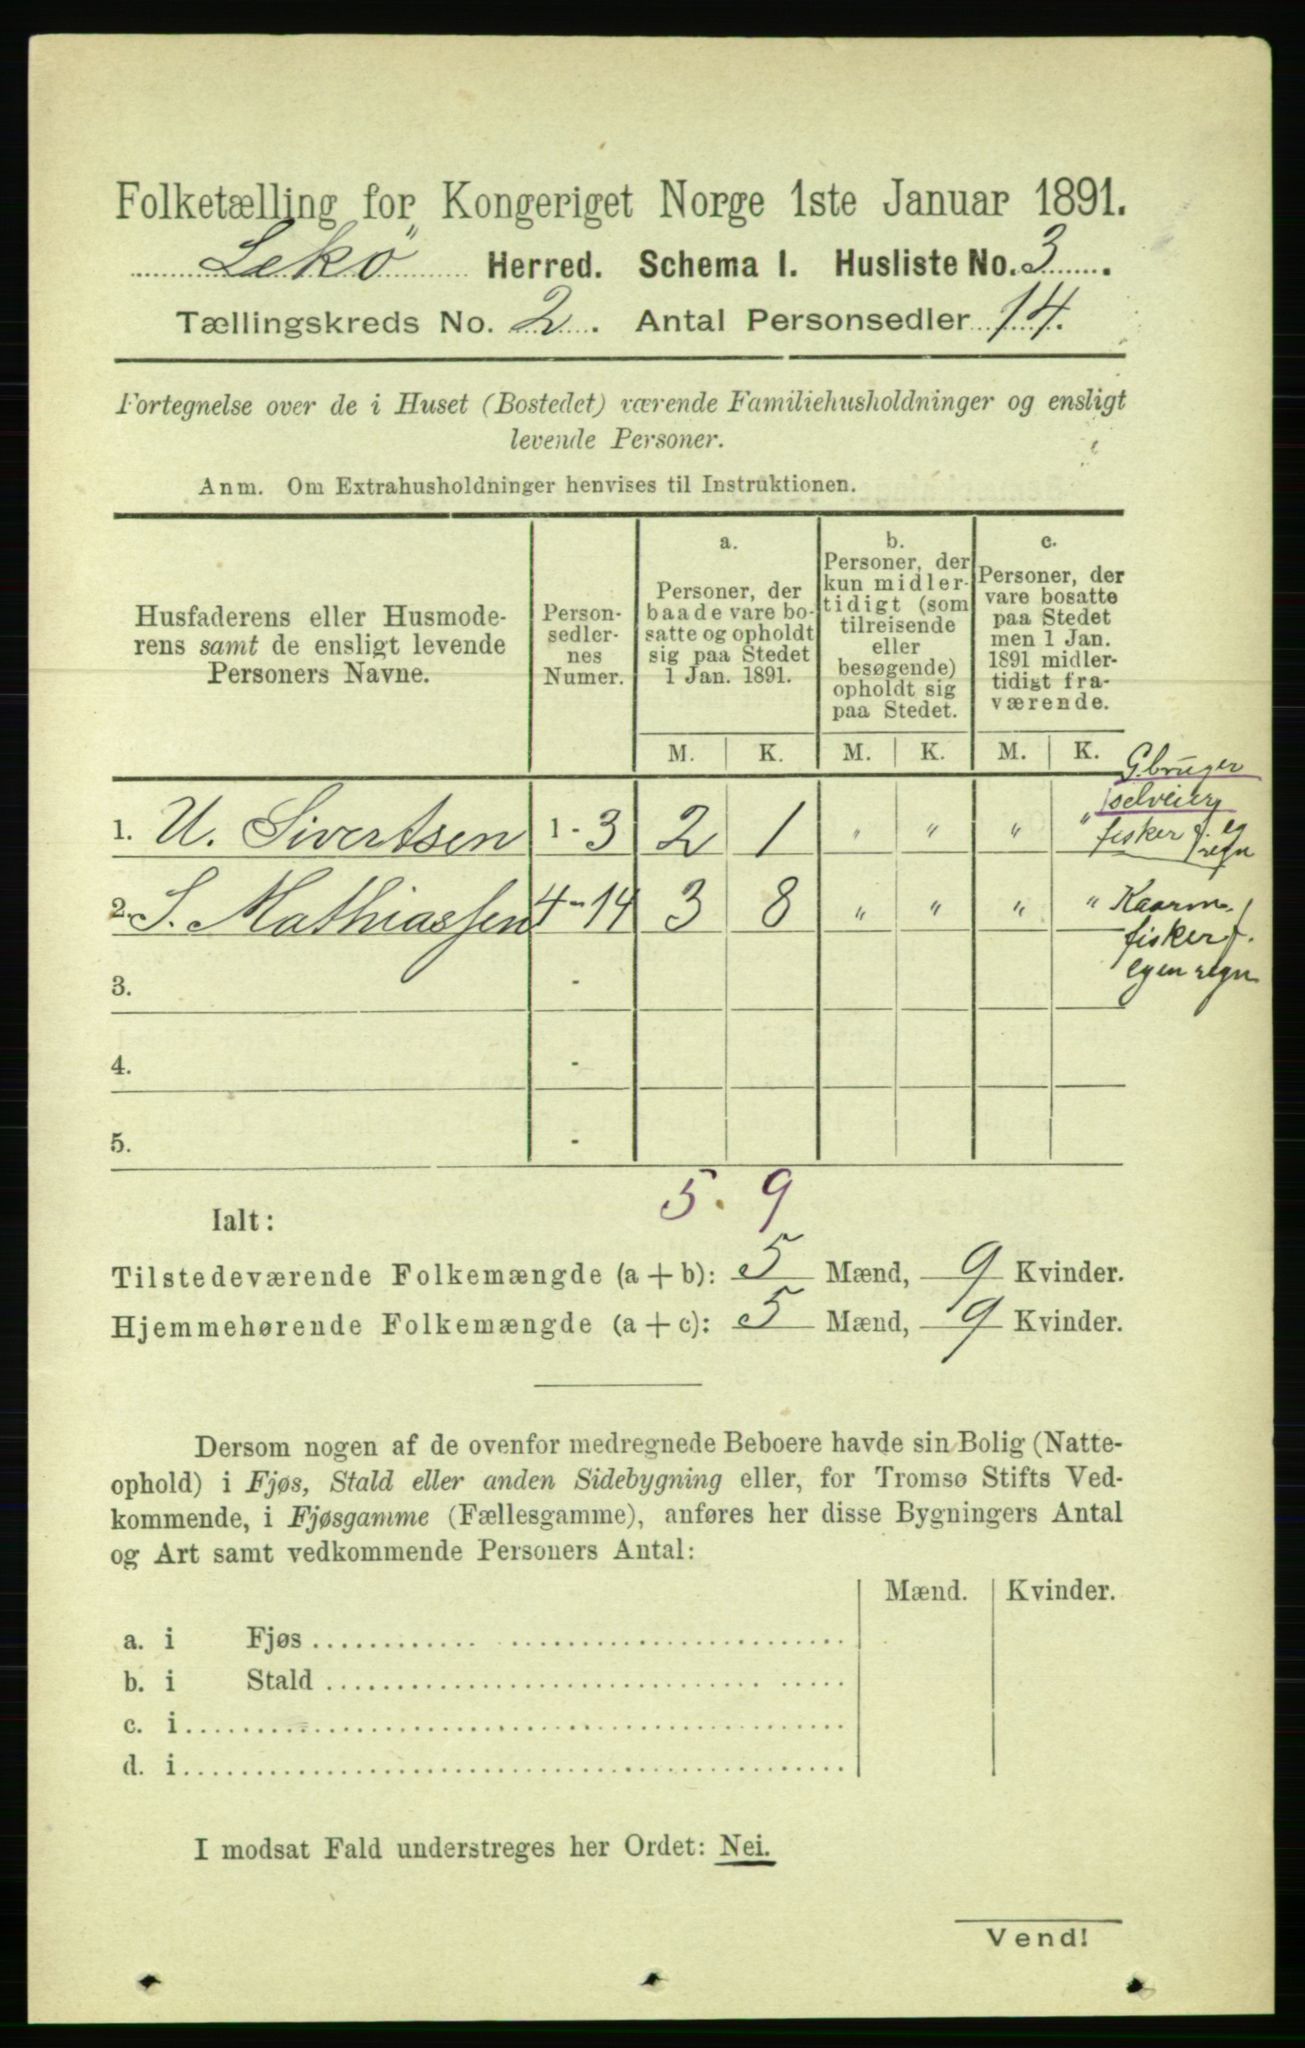 Folketælling for Kongeriget Norge 1ste Januar 1891.
Lekö Herred. Schema I. Husliste No. 3.
Tællingskreds No. 2. Antal Personsedler 14.
Fortegnelse over de i Huset (Bostedet) værende Familiehusholdninger og ensligt
levende Personer.
Anm. Om Extrahusholdninger henvises til Instruktionen.
Husfaderens eller Husmode-
rens samt de ensligt levende
Personers Navne.
Person-
sedler-
nes
Numer.
a.
Personer, der
baade vare bo-
satte og opholdt
sig paa Stedet
1 Jan. 1891.
b.
Personer, der
kun midler-
tidigt (som
tilreisende
eller
besøgende)
opholdt sig
paa Stedet.
c.
Personer, der
vare bosatte
paa Stedet
men 1 Jan.
1891 midler-
tidigt fra-
værende.
M. K. M. K. M. K.
Gbruger
selveier
fisker f. eg
regn
1. U. Sivertsen 1 - 3 2 1 " " " "
2. S. Mathiassen 4 - 14 3 8 " " " "
Kaarm.
fisker f.
egen regn
3. -
4. -
5. -
5. 9
Ialt:
Tilstedeværende Folkemængde (a + b): 5 Mænd, 9 Kvinder.
Hjemmehørende Folkemængde (a + c): 5 Mænd, 9 Kvinder.
Dersom nogen af de ovenfor medregnede Beboere havde sin Bolig (Natte-
ophold) i Fjøs, Stald eller anden Sidebygning eller, for Tromsø Stifts Ved-
kommende, i Fjøsgamme (Fællesgamme), anføres her disse Bygningers Antal
og Art samt vedkommende Personers Antal:
Mænd. Kvinder.
a. i Fjøs
b. i Stald
c. i
d. i
I modsat Fald understreges her Ordet: Nei.
Vend!